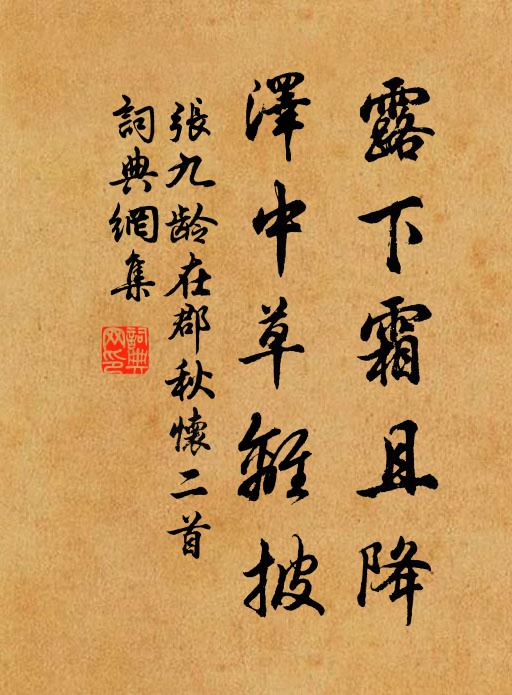 露下霜且降
澤中草離披
張九龄在郡秋懷二首
詞典網集
詞典
网印